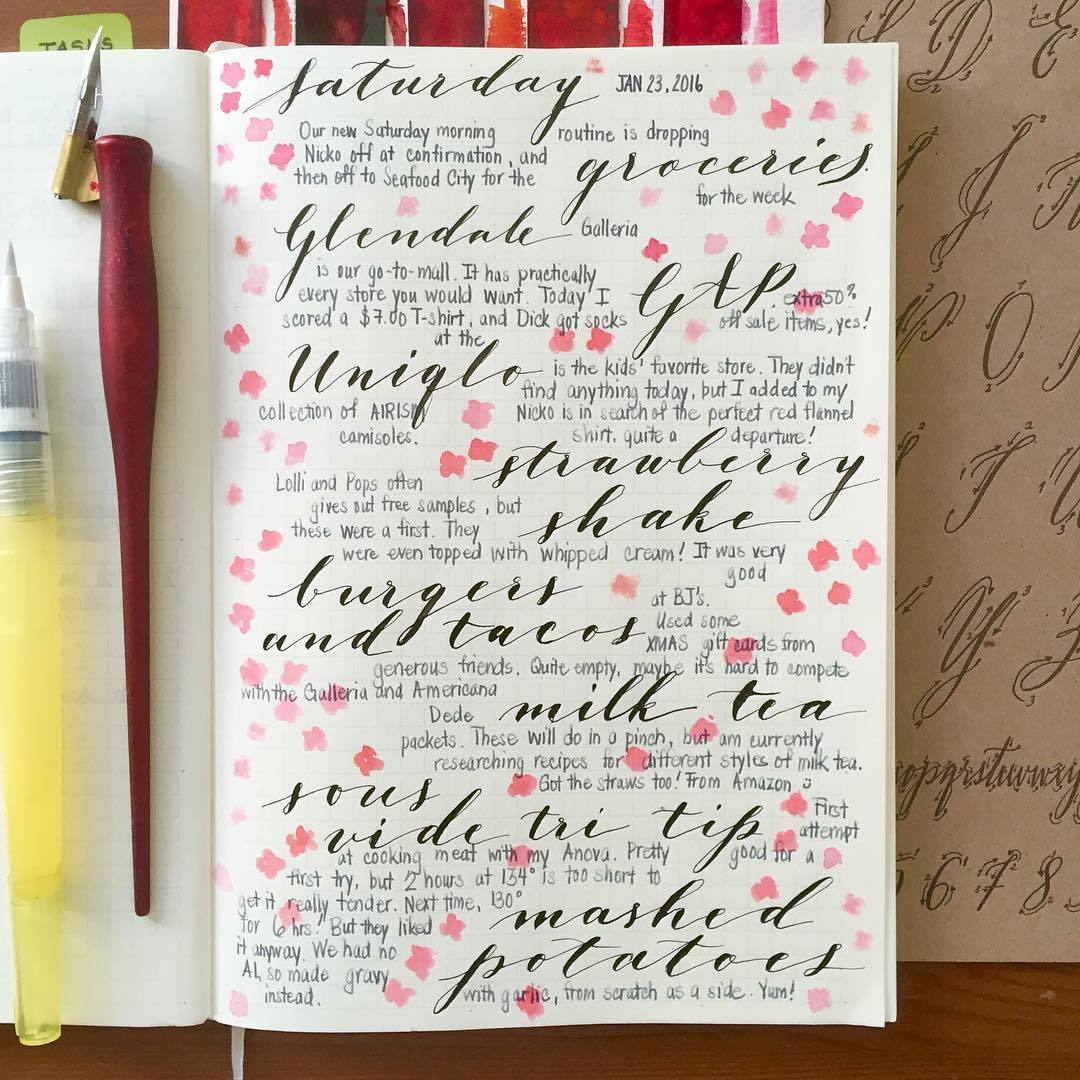 TASKS
saturday JAN 23, 2016
Our new Saturday morning routine is dropping
Nicko off at confirmation, and groceries.
then off to Seafood City for the for the week
Glendale Galleria
is our go-to-mall. It has practically
every store you would want. Today I GXP extra 50%
scored a $7.00 T-shirt, and Dick got socks off sale items, yes!
at the
Uniqlo is the kids' favorite store. They didn't
find anything today, but I added to my
collection of AIRISM Nicko is in search of the perfect red flannel
camisoles. shirt. quite a departure!
strawberry
Lolli and Pops often
gives out free samples, but shake
these were a first. They
were even topped with whipped cream! It was very
good
burgers at BJ's.
Used some
and tacos XMAS gift cards from
generous friends. Quite empty, maybe it's hard to compete
with the Galleria and Americana
Dede milk tea
packets. These will do in a pinch, but am currently
researching recipes for different styles of milk tea.
Got the straws too! From Amazon
sous First
vide tri tip attempt
at cooking meat with my Anova. Pretty good for a
first try, but 2 hours at 134° is too short to
get it really tender. Next time, 130°
for 6 hrs! But they liked mashed
it anyway. We had no
A1, so made gravy potatoes
instead. with garlic, from scratch as a side. Yum!